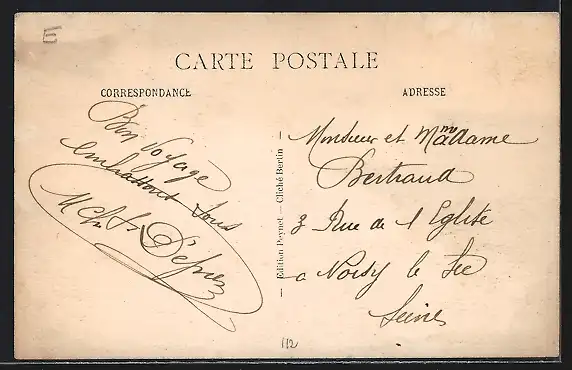 E
CARTE POSTALE
CORRESPONDANCE
ADRESSE
Bon Voyage
embrassons tous
— Edition Peynet — Cliché Bertin —
Monsieur et Madame
Bertraud
3 Rue de l Eglise
a Noisy le Sec
Seine
112